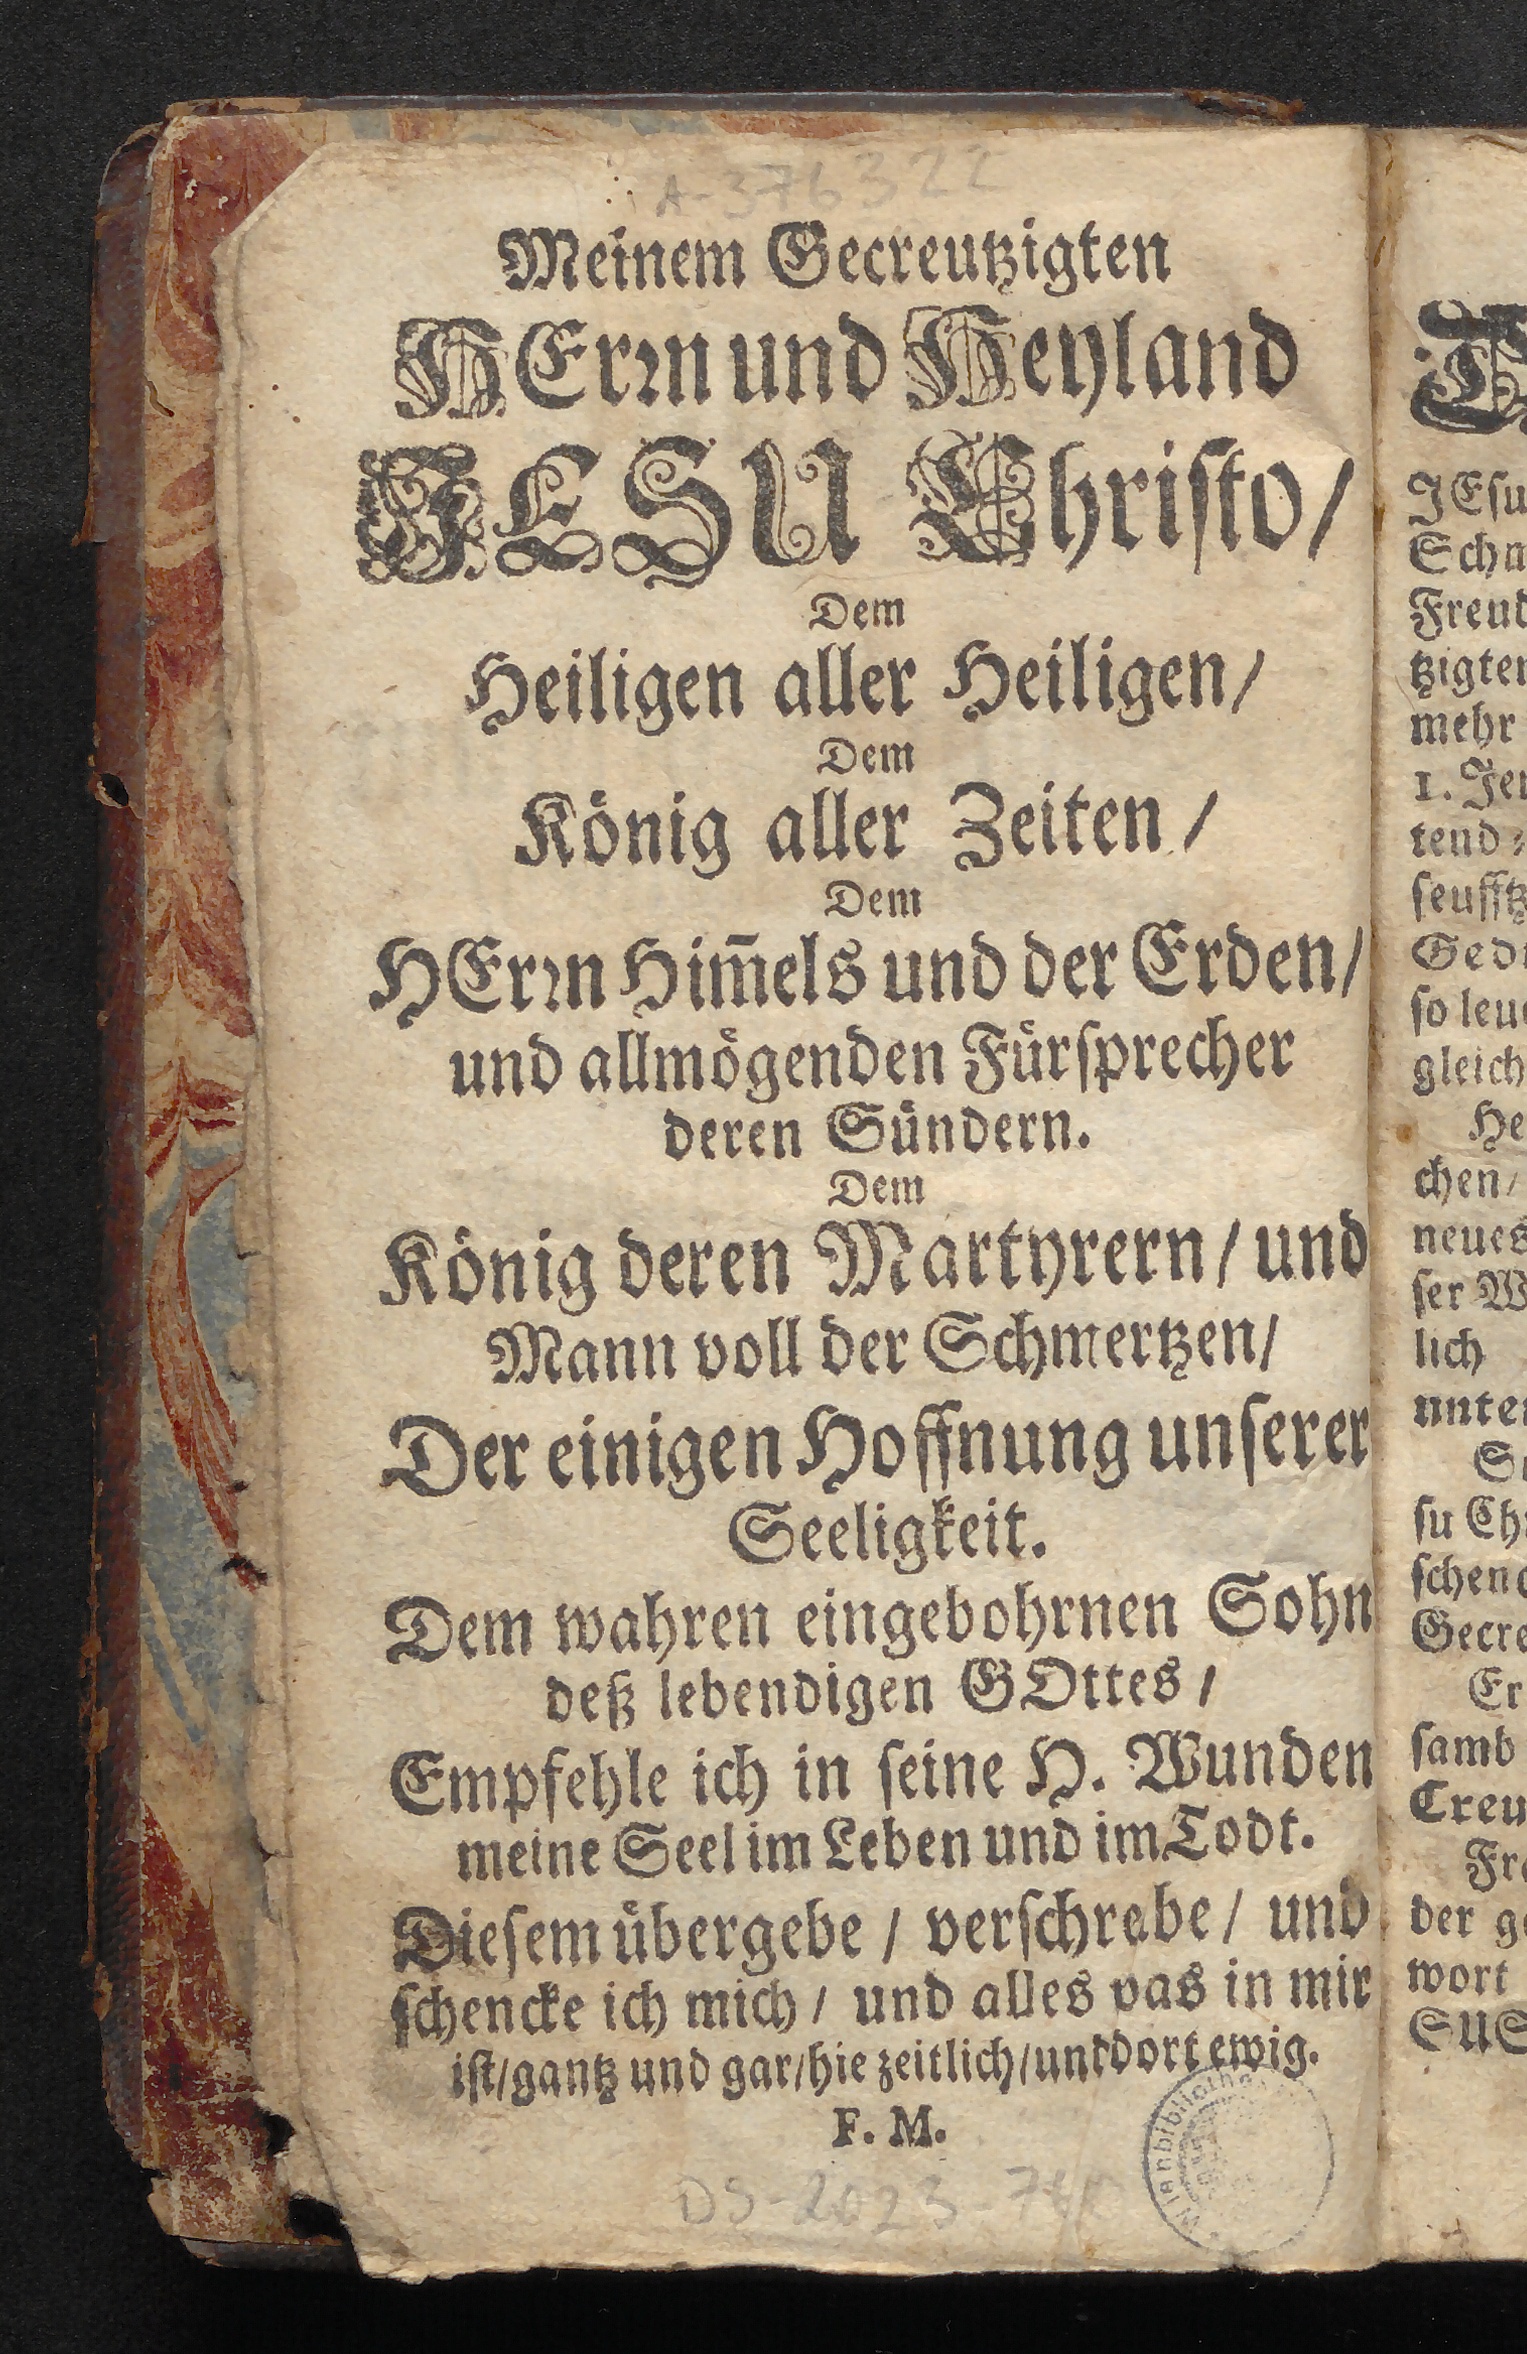 A-376322
Meinem Gecreutzigten
HErꝛn und Heyland
JESU Christo/
Dem
Heiligen aller Heiligen/
Dem
König aller Zeiten/
Dem
HErꝛn Him̄els und der Erden/
und allmögenden Fürsprecher
deren Sündern.
Dem
König deren Martyrern/ und
Mann voll der Schmertzen/
Der einigen Hoffnung unserer
Seeligkeit.
Dem wahren eingebohrnen Sohn
deß lebendigen GOttes/
Empfehle ich in seine H. Wunden
meine Seel im Leben und im Todt.
Diesem übergebe/ verschreibe/ und
schencke ich mich/ und alles was in mir
ist/gantz und gar/hie zeitlich/und dort ewig.
F. M.
DS-2023-7
JEsu
Schm
Freud
tzigten
mehr
1. Jer
tend
seufftz
Ged
so leu
gleich
He
chen/
neues
ser W
lich
unter
su Ch
schenc
Gecre
Er
samb
Creu
Fr
der g
wort
SUS